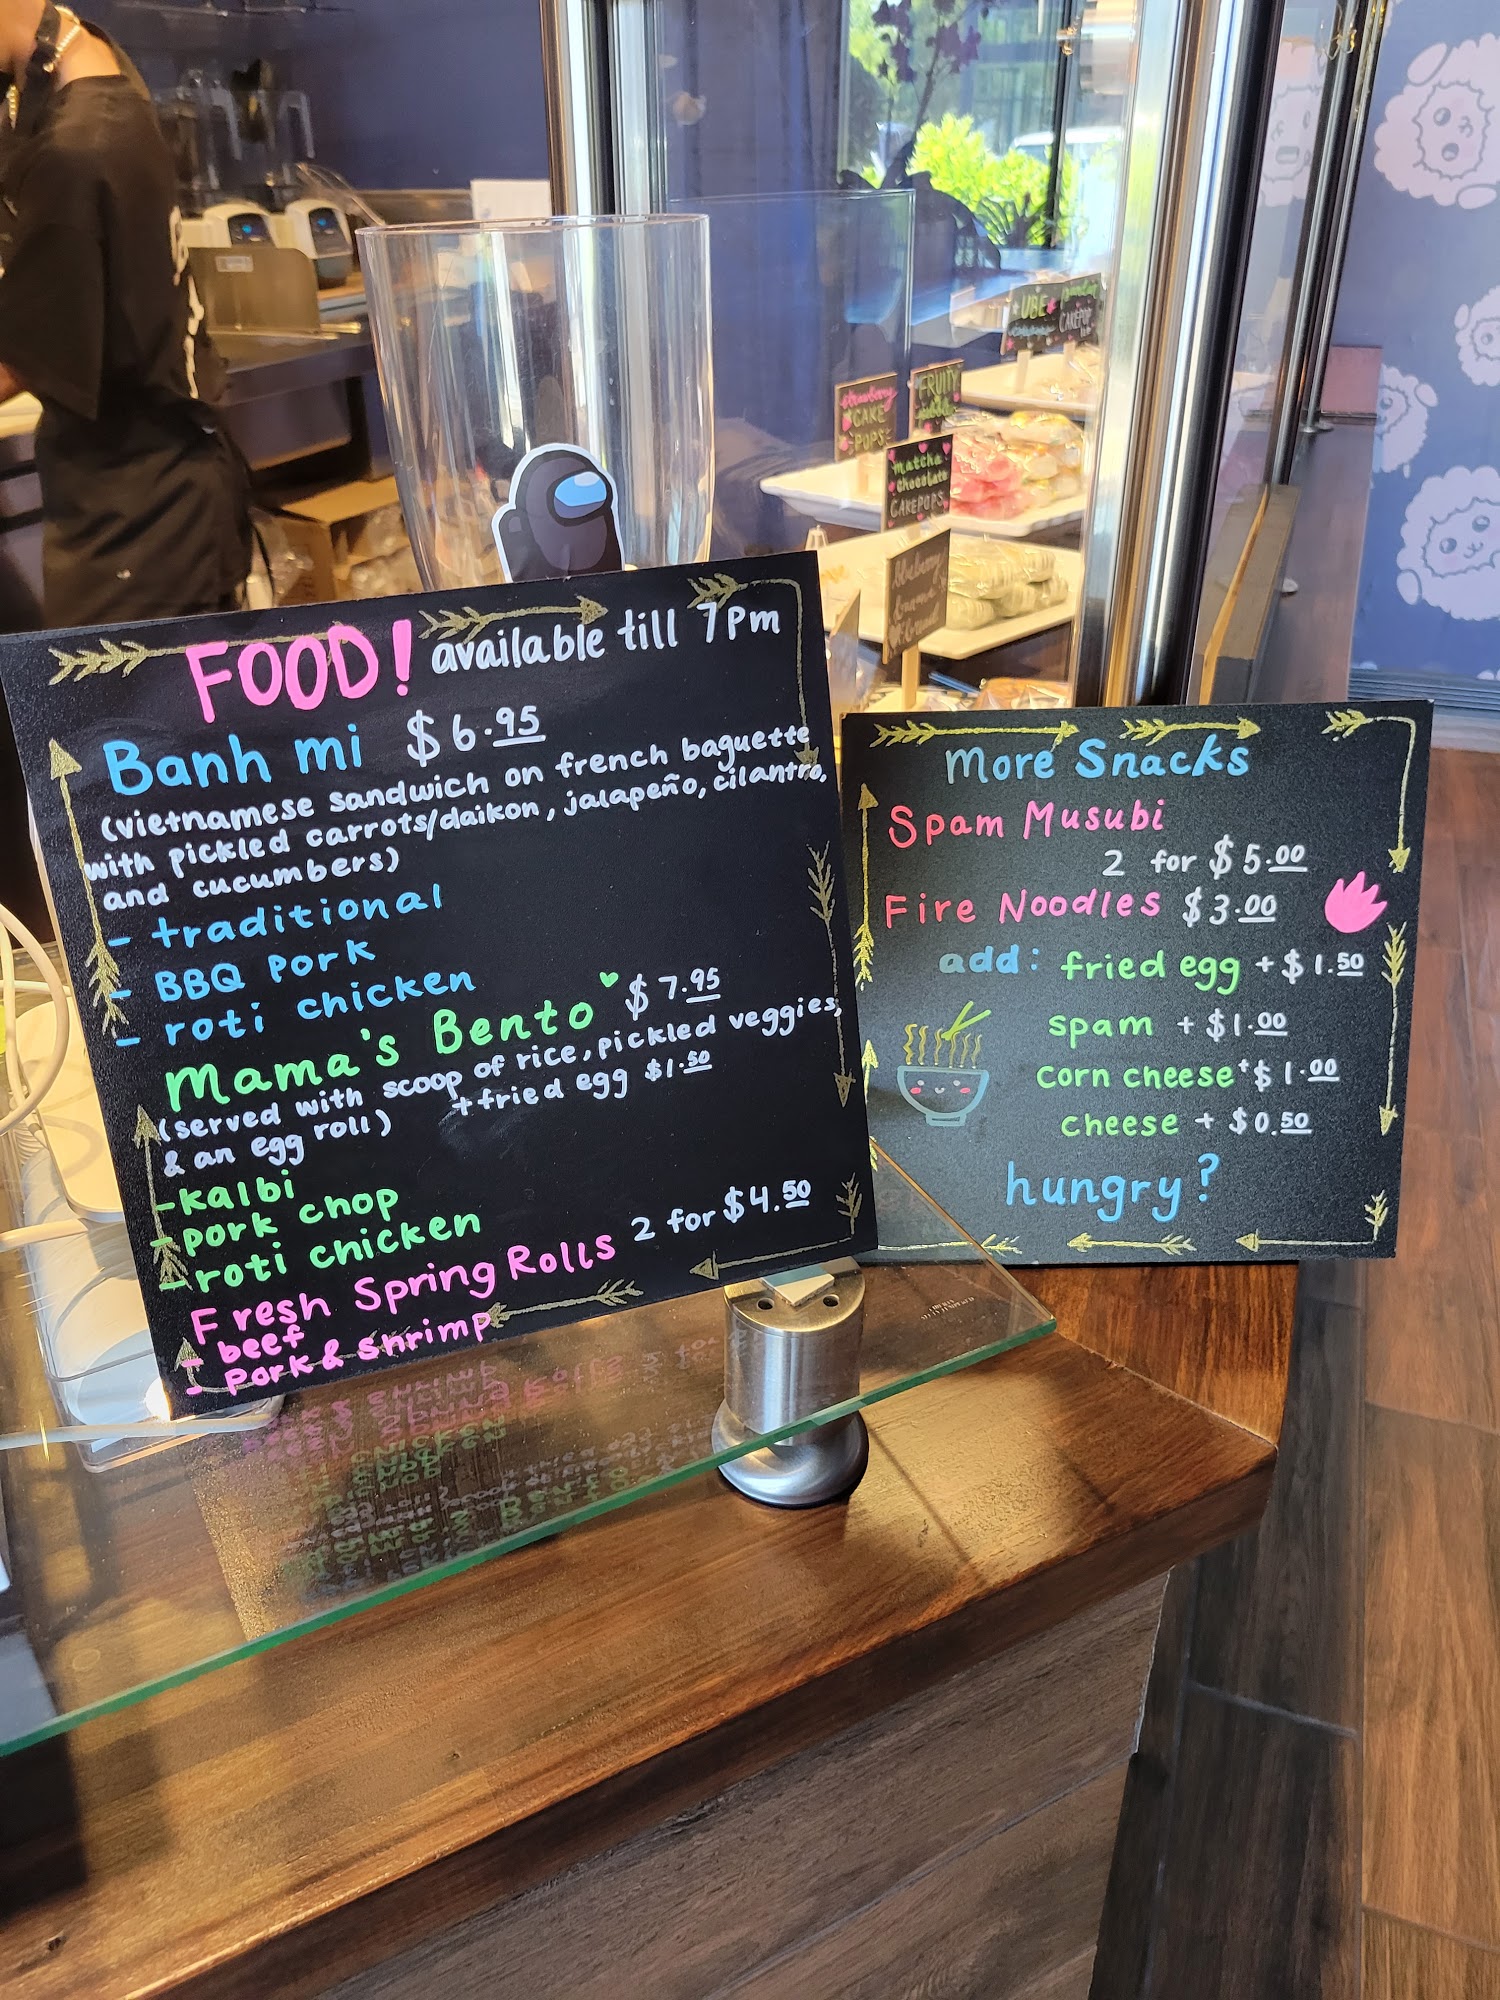 FOOD! available till 7pm
Banh mi $6.95
(vietnamese sandwich on french baguette
with pickled carrots/daikon, jalapeño, cilantro,
and cucumbers)
- traditional
- BBQ pork
- roti chicken
Mama's Bento $7.95
(served with scoop of rice, pickled veggies,
& an egg roll) + fried egg $1.50
- kalbi
- pork chop
- roti chicken
Fresh Spring Rolls 2 for $4.50
- beef
- pork & shrimp
More Snacks
Spam Musubi
2 for $5.00
Fire Noodles $3.00
add: fried egg + $1.50
spam + $1.00
corn cheese + $1.00
cheese + $0.50
hungry?
UBE
CAKEPOP
strawberry
CAKE
POPS
FRUITY
pebble
matcha
chocolate
CAKEPOPS
blueberry
banana